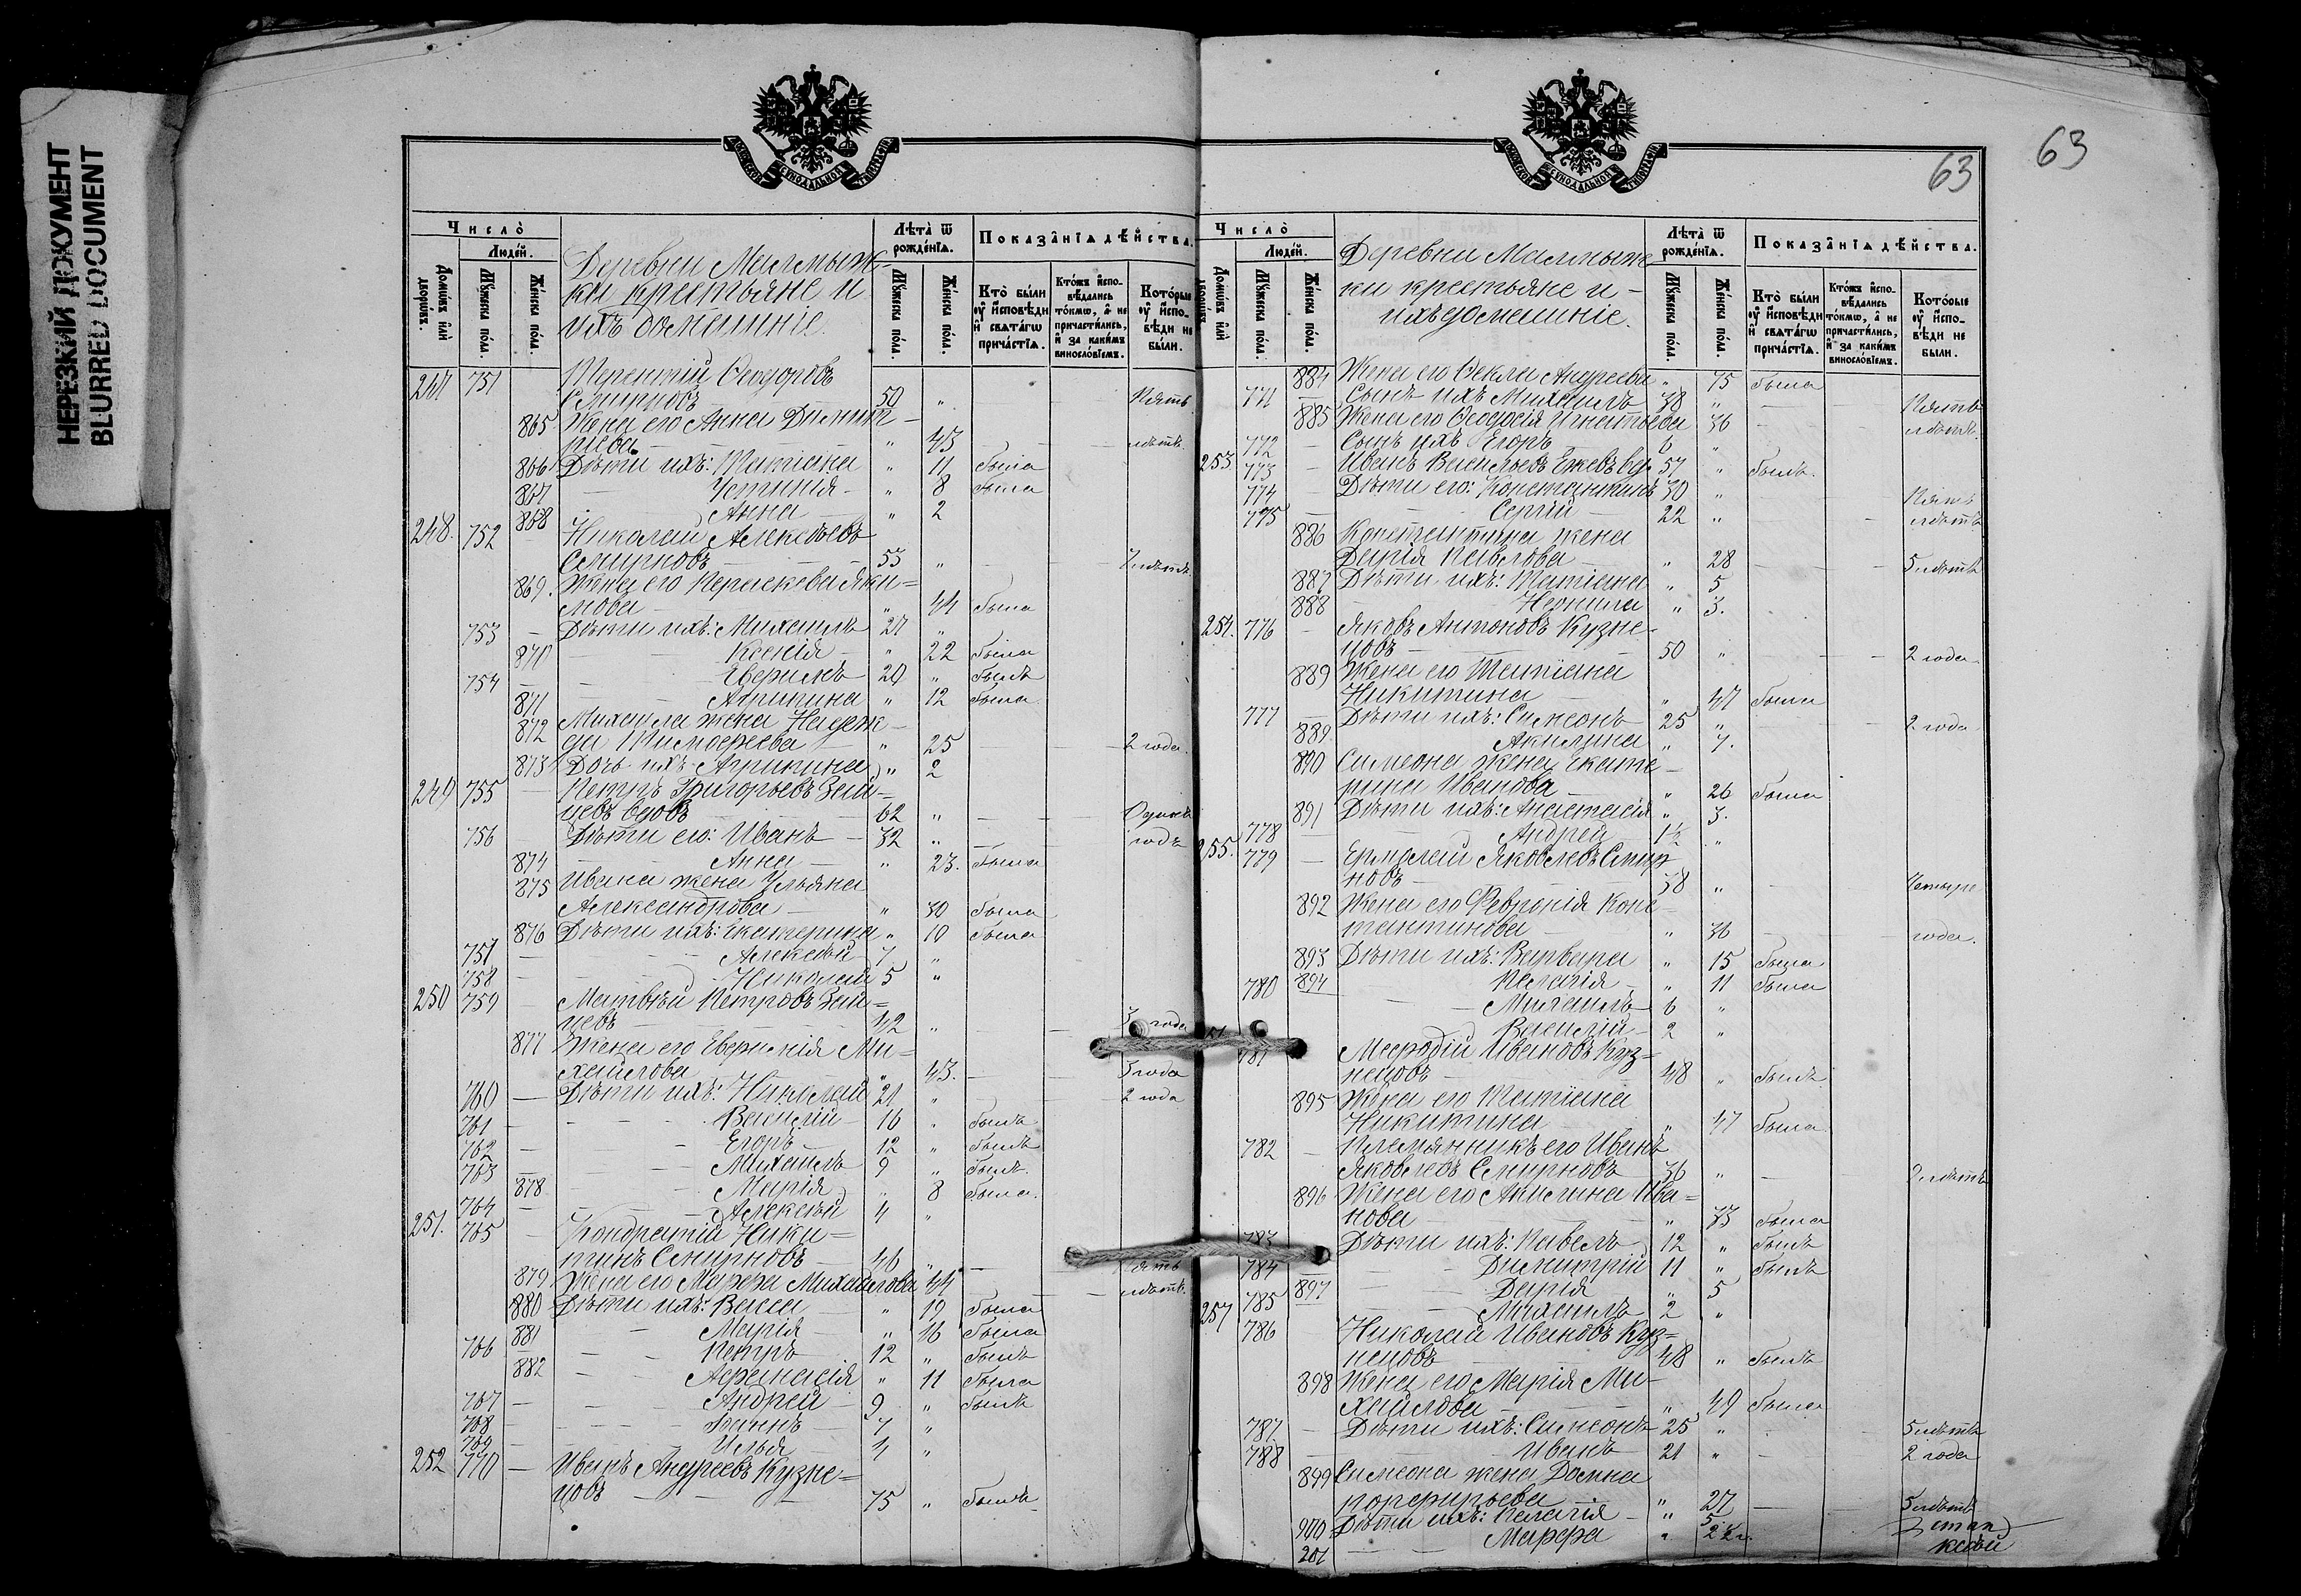 НЕРЕЗКИЙ ДОКУМЕНТ
BLURRED DOCUMENT
Число̀
Люде́й.
Домѡ́въ и҆лѝ дворѡ́въ.
Мꙋ́жеска по́ла.
Же́нска по́ла.
Деревни Малмыж-
ки крестьяне и
ихъ домашніе.
Лѣ́та ѿ рожде́нїѧ.
Мꙋ́жеска по́ла.
Же́нска по́ла.
Показа̂нїѧ дѣ́йства.
Кто̀ бы́ли ᲂу҆ и҆́сповѣди и҆ свѧта́гѡ прича́стїѧ.
Кто́жъ и҆спо-вѣдались то́кмѡ, а҆ не причасти́лись, и҆ за каки́мъ винослѡ́вїемъ.
Кото́рые ᲂу҆ и҆́спо-вѣди не бы́ли.
247 751 Терентій Ѳеодоровъ
Смирновъ 50 „ Пять
865 Жена его Анна Димит-
ріева „ 43 лѣтъ.
866 Дѣти ихъ: Татіана „ 11 была
867 Устинія „ 8 была
868 Анна „ 2
248. 752 Николай Алексѣевъ
Смирновъ 53 „ 7 лѣтъ.
869. Жена его Параскева Яки-
мова „ 44 была
753 Дѣти ихъ: Михаилъ 27 „
870 Ксенія „ 22 была
754 Евфимъ 20 „ былъ
871 Агрипина „ 12 была
872 Михаила жена Надеж-
да Тимоѳеева „ 25 2 года.
873 Дочь ихъ Агрипина „ 2
249 755 Петръ Григорьевъ Зай-
цевъ вдовъ 62 „ Одинъ
756 Дѣти его: Иванъ 32 „ годъ
874 Анна „ 23. была
875 Ивана жена Ульяна
Александрова „ 30 была
876 Дѣти ихъ: Екатерина „ 10 была
757 Алексѣй 7 „
758 Николай 5 „
250 759 Матвѣй Петровъ Зай-
цевъ 42 „ 3 года
877 Жена его Евфимія Ми-
хайлова „ 43. 3 года
760 Дѣти ихъ: Николай 21 „ 2 года
761 Василій 16 „ былъ
762 Егоръ 12 „ былъ
763 Михаилъ 9 „ былъ.
878 Марія „ 8 была.
764 Алексѣй 4 „
251. 765 Кондратій Ники-
тинъ Смирновъ 46 „ Пять
879 Жена его Марѳа Михайлова 44 лѣтъ.
880 Дѣти ихъ: Васса „ 19 была
881 Марія „ 16 была
766 Петръ 12 „ былъ
882 Аѳанасія „ 11 была
767 Андрей 9 „ былъ
768 Іоаннъ 7 „
769 Илья 4 „
252 770 Иванъ Андреевъ Кузне-
цовъ 75 „ былъ
63
63
Число̀
Люде́й.
Домѡ́въ и҆лѝ дворѡ́въ.
Мꙋ́жеска по́ла.
Же́нска по́ла.
Деревни Малмыж-
ки крестьяне и
ихъ домашніе.
Лѣ́та ѿ рожде́нїѧ.
Мꙋ́жеска по́ла.
Же́нска по́ла.
Показа̂нїѧ дѣ́йства.
Кто̀ бы́ли ᲂу҆ и҆́сповѣди и҆ свѧта́гѡ прича́стїѧ.
Кто́жъ и҆спо-вѣдались то́кмѡ, а҆ не причасти́лись, и҆ за каки́мъ винослѡ́вїемъ.
Кото́рые ᲂу҆ и҆́спо-вѣди не бы́ли.
884 Жена его Ѳекла Андреева „ 75 была
771 Сынъ ихъ Михаилъ 38 „ Пять
885 Жена его Ѳеодосія Игнатьева 36 лѣтъ.
772 Сынъ ихъ Егоръ 6 „
253. 773 Иванъ Васильевъ Ежевъ вд. 57 „ былъ.
774 Дѣти его: Константинъ 30 „ Пять
775 Сергій 22 „ лѣтъ
886 Константина жена
Дарія Павлова „ 28 5 лѣтъ
887 Дѣти ихъ: Татіана „ 5
888 Неонила „ 3.
254. 776 Яковъ Антоновъ Кузне-
цовъ 50 „ 2 года
889 Жена его Татіана
Никитина „ 47 была
777 Дѣти ихъ: Симеонъ 25 „ 2 года
889. Акилина „ 7.
890 Симеона жена Екате-
рина Иванова „ 26 была
891 Дѣти ихъ: Анастасія „ 3.
778 Андрей 1½ „
255. 779 Ермолай Яковлевъ Смир-
новъ 38 „ Четыре
892 Жена его Февронія Конс-
тантинова „ 36 года.
893 Дѣти ихъ: Варвара „ 15 была
894 Пелагія „ 11 была
780 Михаилъ 6 „
Василій 2 „
781 Меѳодій Ивановъ Куз-
нецовъ 48 „ былъ
895 Жена его Татіана
Никитина „ 47 была
782 Племянникъ его Иванъ
Яковлевъ Смирновъ 36 „ 7 лѣтъ
896 Жена его Акилина Ива-
нова „ 33 была
783 Дѣти ихъ: Павелъ 12 „ былъ
784 Димитрій 11 „ былъ
897 Дарія „ 5
785 Михаилъ 2 „
257 786 Николай Ивановъ Куз-
нецовъ 48 „ былъ
898 Жена его Марія Ми-
хайлова „ 49 была
787 Дѣти ихъ: Симеонъ 25 „ 5 лѣтъ
788 Иванъ 21 „ 2 года
899 Симеона жена Домна
Порфирьева „ 27 5 лѣтъ
900 Дѣти ихъ: Пелагія „ 5
201 Марѳа „ 2½ г.